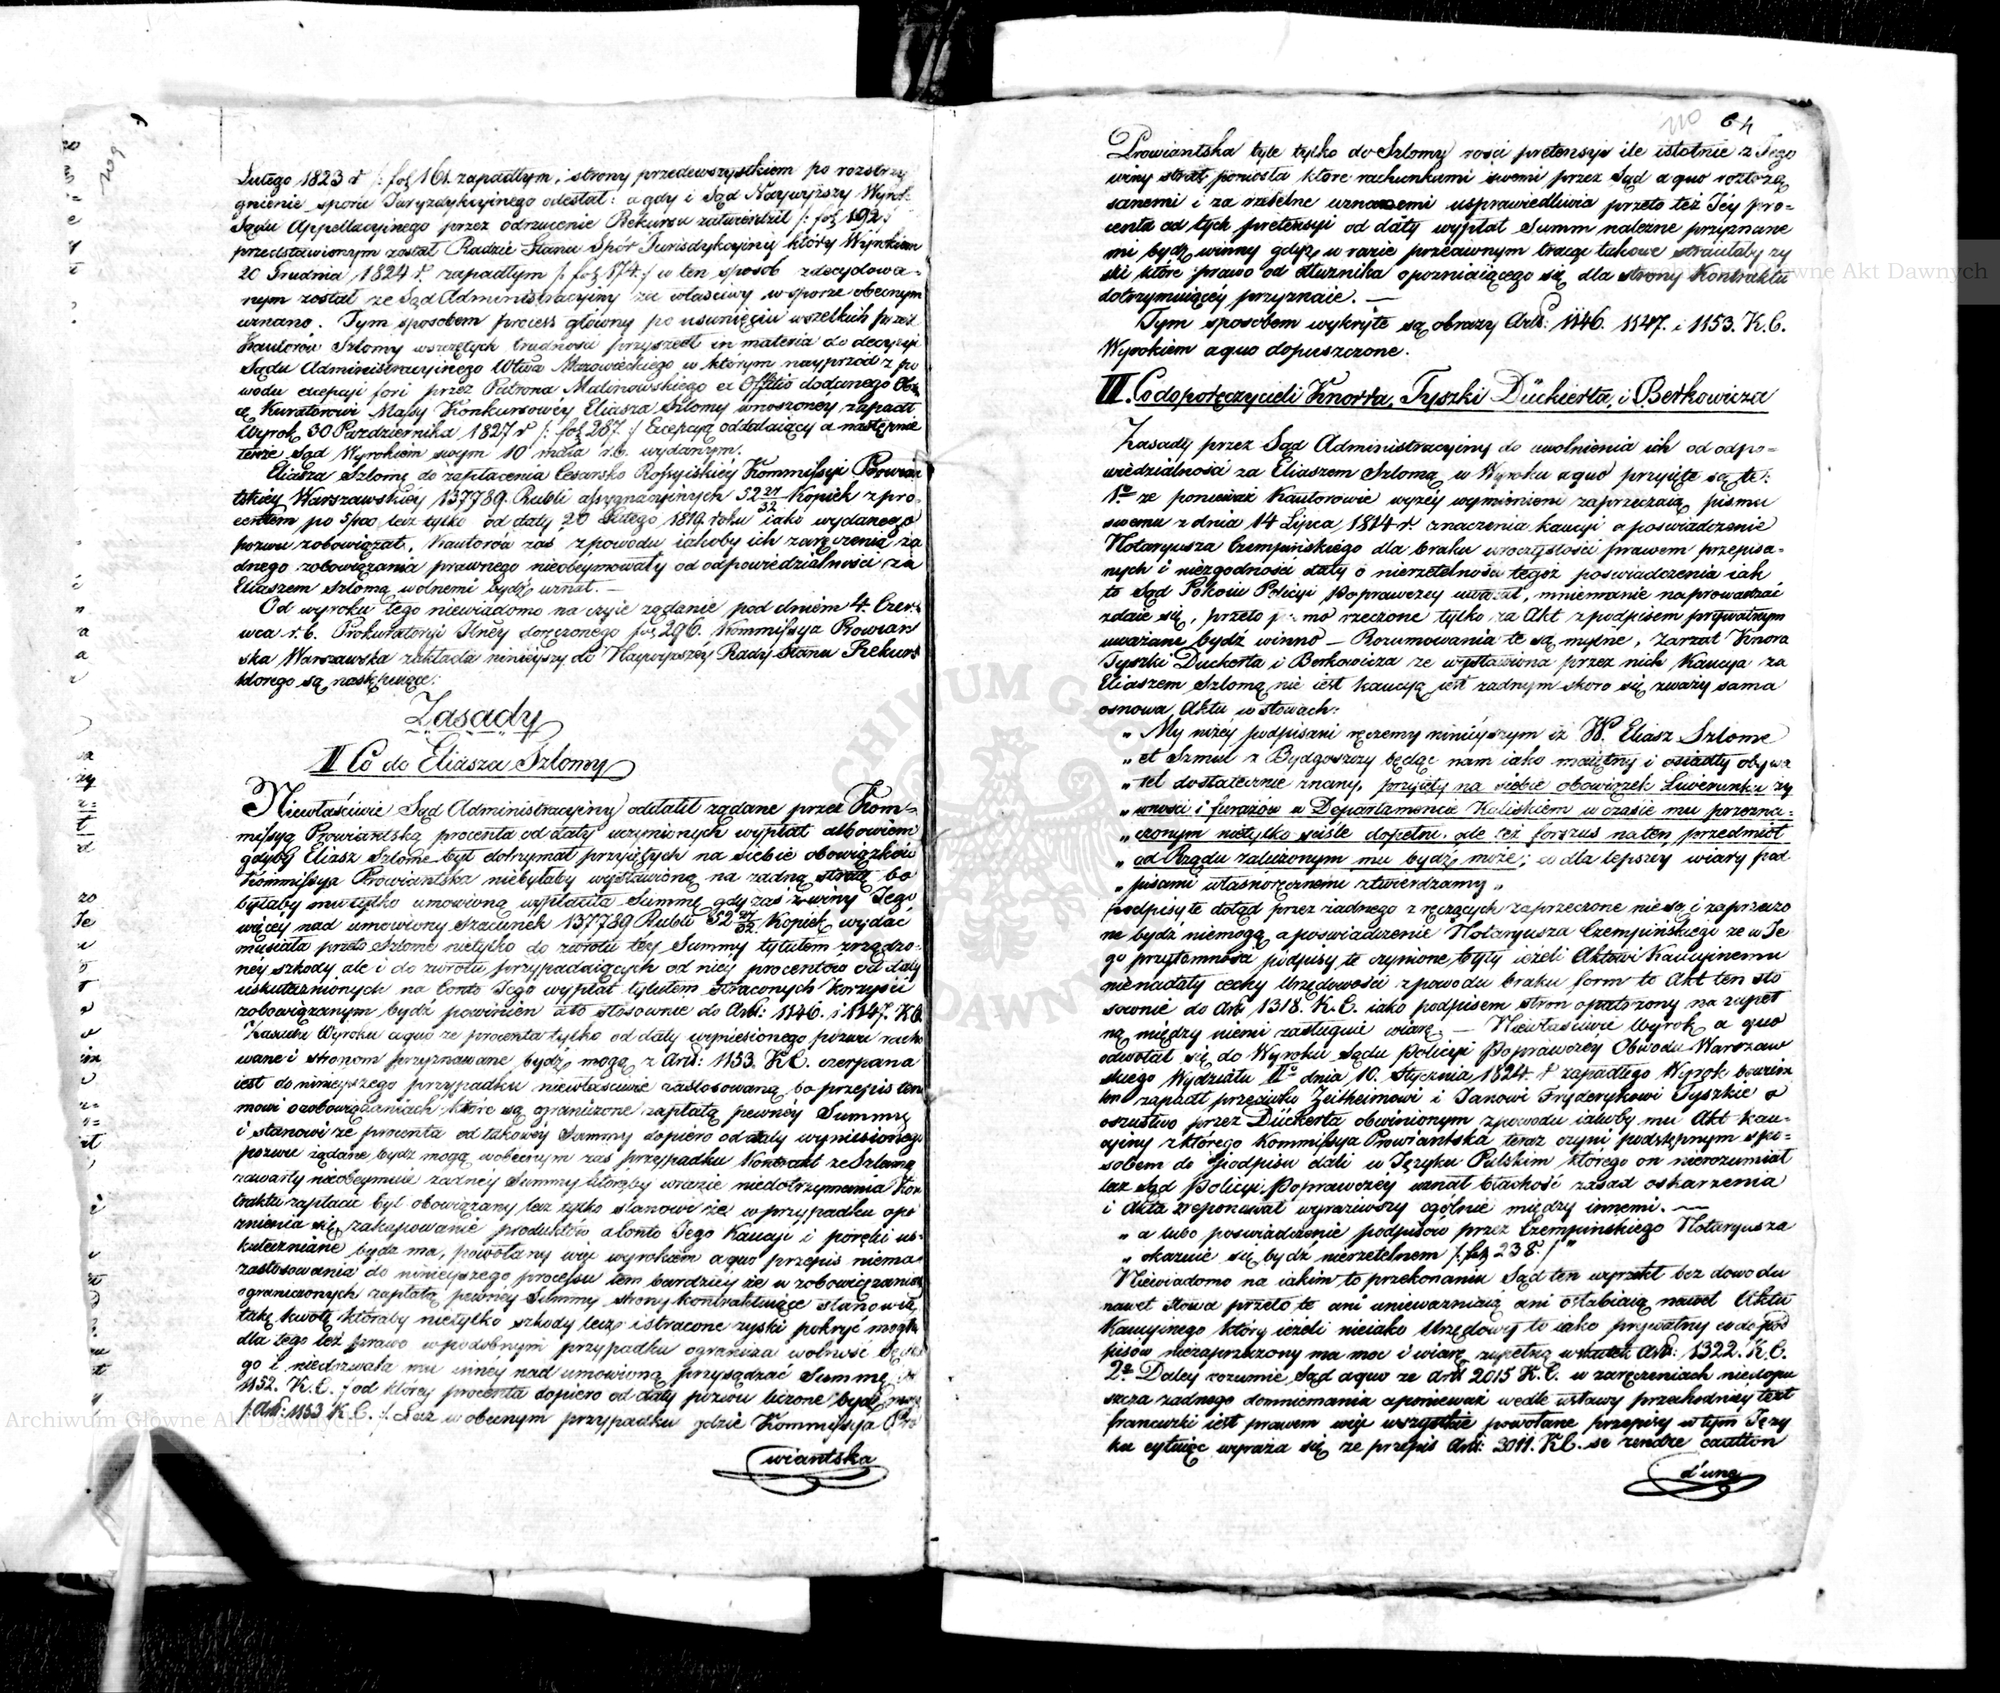 Lutego 1823 r /: fol 161. zapadłym, strony przedewszystkiem po rozstrzy
gnienie sporu Juryzdykcyinego odesłał: a gdy i Sąd Naywyższy Wyrok
Sądu Appellacyinego przez odrzucenie Rekursu zatwierdził /: fol 192 :/
przedstawionym został Radzie Stanu Spór Jurisdykcyiny który Wyrokiem
20 Grudnia 1824 r zapadłym /: fol 174 :/ w ten sposob zdecydowa-
nym został ze Sąd Administracyiny za właściwy w sporze obecnym
uznano. Tym sposobem process główny po usunięciu wszelkich przez
Kautorów Szlomy wszczętych trudności przyszedł in materia do decyzyi
Sądu Administracyinego Wdwa Mazowieckiego w którym nayprzód z po
wodu excepcyi fori przez Patrona Malinowskiego ex Offitio dodanego Obro
cę Kuratorowi Massy Konkursowéy Eliasza Szlomy wnoszonéy zapadł
Wyrok 30 Pazdziernika 1827 r /: fol 287. :/ Excepcyą oddalaiący a następnie
teraz Sąd Wyrokiem swym 10 maia r.b. wydanym.
Eliasza Szlomę do zapłacenia Cesarsko Rossyiskiéy Kommissyi Prowian
tskiéy Warszawskiéy 137789. Rubli assygnacyinych 52 27/32 Kopiek z pro-
centem po 5/100 lecz tylko od daty 20 Lutego 1819 roku iako wydanego
pozwu zobowiązał, Kautorów zaś z powodu iakoby ich zaręczenia ża
dnego zobowiązania prawnego nieobeymowały od odpowiedzialności za
Eliaszem Szlomą wolnemi bydź uznał. —
Od wyroku tego niewiadomo na czyie żądanie pod dniem 4. Czer-
wca r. b. Prokuratoryi Jlnéy doręczonego fol 296. Kommissya Prowian
ska Warszawska zakłada ninieyszy do Naywyższéy Rady Stanu Rekurs
którego są następuiące:
Zasady
I Co do Eliasza Szlomy
Niewłaściwie Sąd Administracyiny oddalił żądane przez Kom-
missyą Prowiantską procenta od daty uczynionych wypłat albowiem
gdyby Eliasz Szlome był dotrzymał przyiętych na siebie obowiązków
Kommissya Prowiantska niebyłaby wystawioną na żadną stratę bo
byłaby mu tylko umowioną wypłaciła Summę gdy zaś z winy Jego
więcéy nad umowiony szacunek 137789 Rubli 52 27/32 Kopiek wydać
musiała przeto Szlome nietylko do zwrotu téy Summy tytułem zrządzo-
néy szkody ale i do zwrotu przypadaiących od niéy procentów od daty
uskutecznionych na Conto Jego wypłat tytułem straconych korzyści
zobowiązanym bydź powinien a to stosownie do Artt: 1146. i 1147. K.C.
Zasada Wyroku a quo że procenta tylko od daty wyniesionego pozwu racho
wane i stronom przyznawane bydź mogą z Artt: 1153 K.C. czerpana
iest do ninieyszego przypadku niewłaściwie zastosowaną bo przepis ten
mówi o zobowiązaniach które są ograniczone zapłatą pewnéy Summy
i stanowi że procenta od takowéy Summy dopiero od daty wyniesionego
pozwu żądane bydź mogą w obecnym zaś przypadku Kontrakt ze Szlomą
zawarty nieobeymuie żadnéy Summy którąby w razie niedotrzymania Kon
traktu zapłacić był obowiązany lecz tylko stanowi że w przypadku opó
znienia się zakupowanie produktów a Conto Jego Kaucyi i poręki us-
kutecznianè bydź ma, powołany więc wyrokiem a quo przepis niema
zastosowania do ninieyszego processu tem bardziéy że w zobowiązaniach
ograniczonych zapłatą pewnéy Summy strony kontraktuiące stanowią
taką kwotę któraby nietylko szkody lecz i stracone zyski pokryć mogła
dla tego też prawo w podobnym przypadku ogranicza wolność Sędzie
go i niedozwala mu innéy nad umowioną przysądzać Summę Art
1152. K.C. / od któréy procenta dopiero od daty pozwu liczone bydź mogą
/: Artt: 1153 K.C. :/ Lecz w obecnym przypadku gdzie Kommissya Pro
wiantska
110 64
Prowiantska tyle tylko do Szlomy rości pretensyi ile istotnie z Jego
winy strat poniosła które rachunkami swemi przez Sąd a quo roztrzą
sanemi i za rzetelne uznanemi usprawiedliwia przeto też Jéy pro-
centa od tych pretensyi od daty wypłat Summ należne przyznane
mi bydź winny gdyż w razie przeciwnym tracąc takowe straciłaby zy
ski które prawo od dłużnika opozniaiącego się dla strony Kontraktu
dotrzymuiącéy przyznaie. —
Tym sposobem wykryte są obrazy Artt: 1146. 1147. i 1153. K.C.
Wyrokiem a quo dopuszczone.
II. Co do poręczycieli Knorra, Tyszki Dückerta, i Berkowicza
Zasady przez Sąd Administracyiny do uwolnienia ich od odpo-
wiedzialności za Eliaszem Szlomą w Wyroku a quo przyięte są te:
1o że ponieważ Kautorowie wyżéy wymienieni zaprzeczaią pismu
swemu z dnia 14 Lipca 1814 r. znaczenia kaucyi a poświadczenie
Notaryusza Czempińskiego dla braku uroczystości prawem przepisa-
nych i niezgodności daty o nierzetelności tegoż poświadczenia iak
to Sąd Pokoiu Policyi Poprawczey uważał, mniemanie naprowadzać
zdaie się, przeto pismo rzeczone tylko za Akt z podpisem prywatnym
uważane bydź winno — Rozumowania te są mylne, Zarzut Knora
Tyszki Duckerta i Berkowicza że wystawiona przez nich Kaucya za
Eliaszem Szlomą nie iest kaucyą iest żadnym skoro się zważy sama
osnowa Aktu w słowach:
„ My niżéy podpisani ręczemy ninieyszym iż W. Eliasz Szlome
„ et Szmul z Bydgoszczy będąc nam iako maiętny i osiadły obywa
„ tel dostatecznie znany, przyięty na siebie obowiązek Liwerunku ży
„ wności i furażów w Departamencie Kaliskiem w czasie mu przezna-
„ czonym nietylko ściśle dopełni, ale też forszus na ten przedmiot
„ od Rządu zaliczonym mu bydź może; co dla lepszéy wiary pod
„ pisami własnoręcznemi stwierdzamy „
podpisy te dotąd przez żadnego z ręczących zaprzeczone nie są i zaprzeczo
ne bydź niemogą a poświadczenie Notaryusza Czempińskiego że w Je
go przytomności podpisy te czynione były ieżeli Aktowi Kaucyinemu
nienadały cechy Urzędowości z powodu braku form to Akt ten sto
sownie do Artt 1318. K.C. iako podpisem stron opatrzony na zupeł
ną między niemi zasługuie wiarę. — Niewłaściwie Wyrok a quo
odwołał się do Wyroku Sądu Policyi Poprawczéy Obwodu Warszaw
skiego Wydziału IIo dnia 10. Stycznia 1824. r zapadłego Wyrok bowiem
ten zapadł przeciwko Zeitheimowi i Janowi Fryderykowi Tyszkie o
oszustwo przez Dückerta obwinionym z powodu iakoby mu Akt kau-
cyiny z którego Kommissya Prowiantska teraz czyni podstępnym spo-
sobem do podpisu dali w Języku Polskim którego on nierozumiał
lecz Sąd Policyi Poprawczéy uznał błachość zasad oskarżenia
i Akta zreponował wyraziwszy ogólnie między innemi. —
„ a lubo poświadczenie podpisów przez Czempińskiego Notaryusza
„ okazuie się bydź nierzetelnem /: fol 238. :/ „
Niewiadomo na iakim to przekonaniu Sąd ten wyrzekł bez dowodu
nawet słowa przeto te ani unieważniaią ani osłabiaią nawet Aktu
Kaucyinego który ieżeli nieiako Urzędowy to iako prywatny co do pod
pisów niezaprzeczony ma moc i wiarę zupełną w skutek Artt: 1322. K.C.
2o Daléy rozumie Sąd a quo że Artt 2015 K.C. w zaręczeniach niedopu
szcza żadnego domniemania a ponieważ wedle ustawy przechodniéy text
francuzki iest prawem więc wszystkie powołane przepisy w tym Języ
ku cytuiąc wyraża się że przepis Artt: 2011. K.C. se rendre caution
d'une